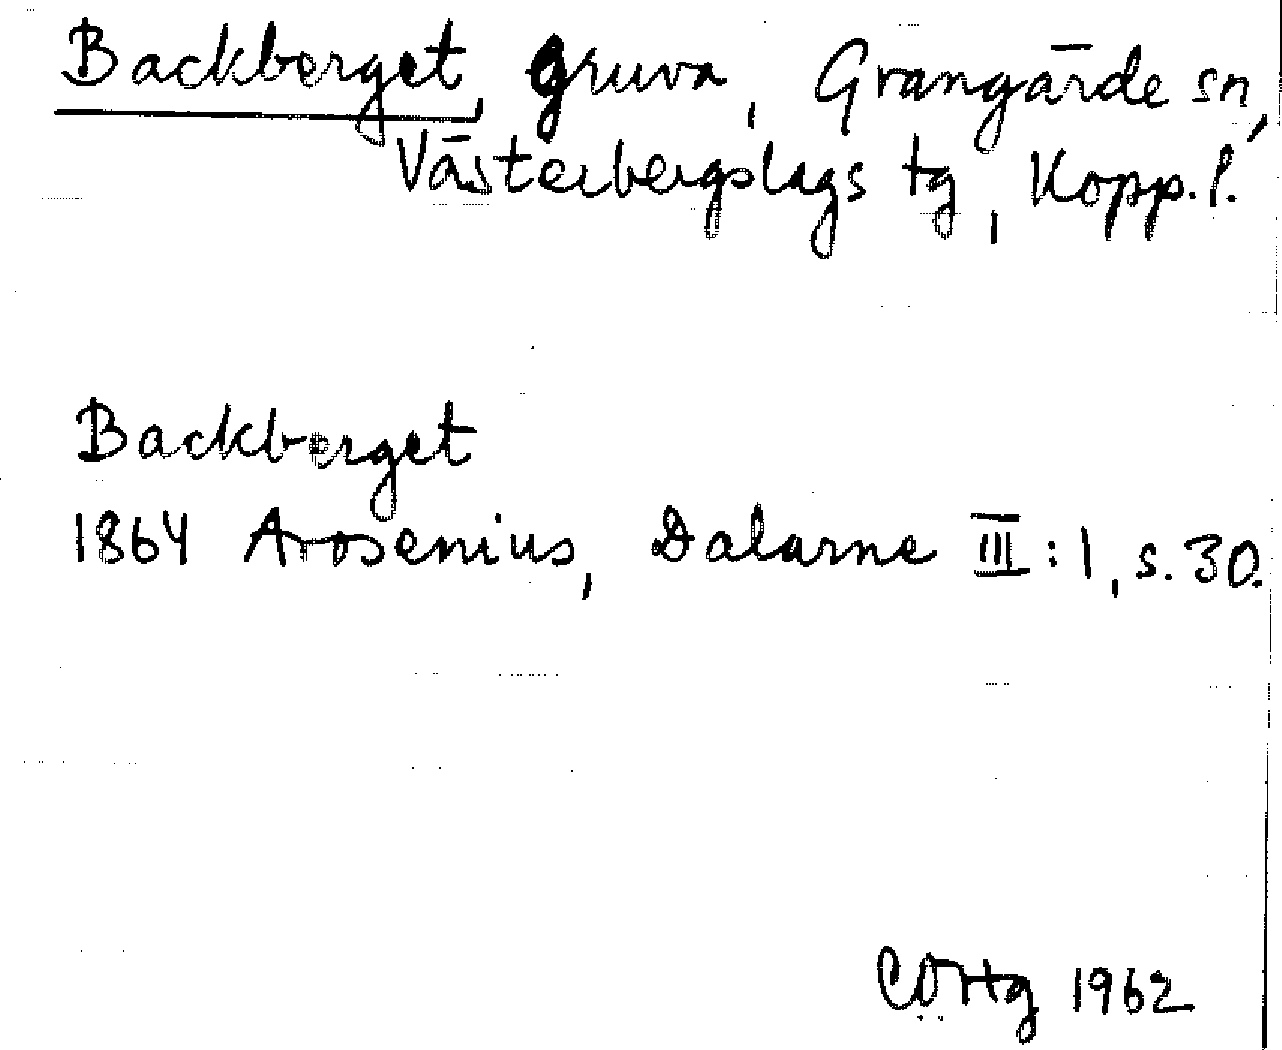 Backberget, gruva, Grangärde sn,
Västerbergslags tg, Kopp.l.
Backberget
1864 Arosenius, Dalarne III:1, s.30.
1962